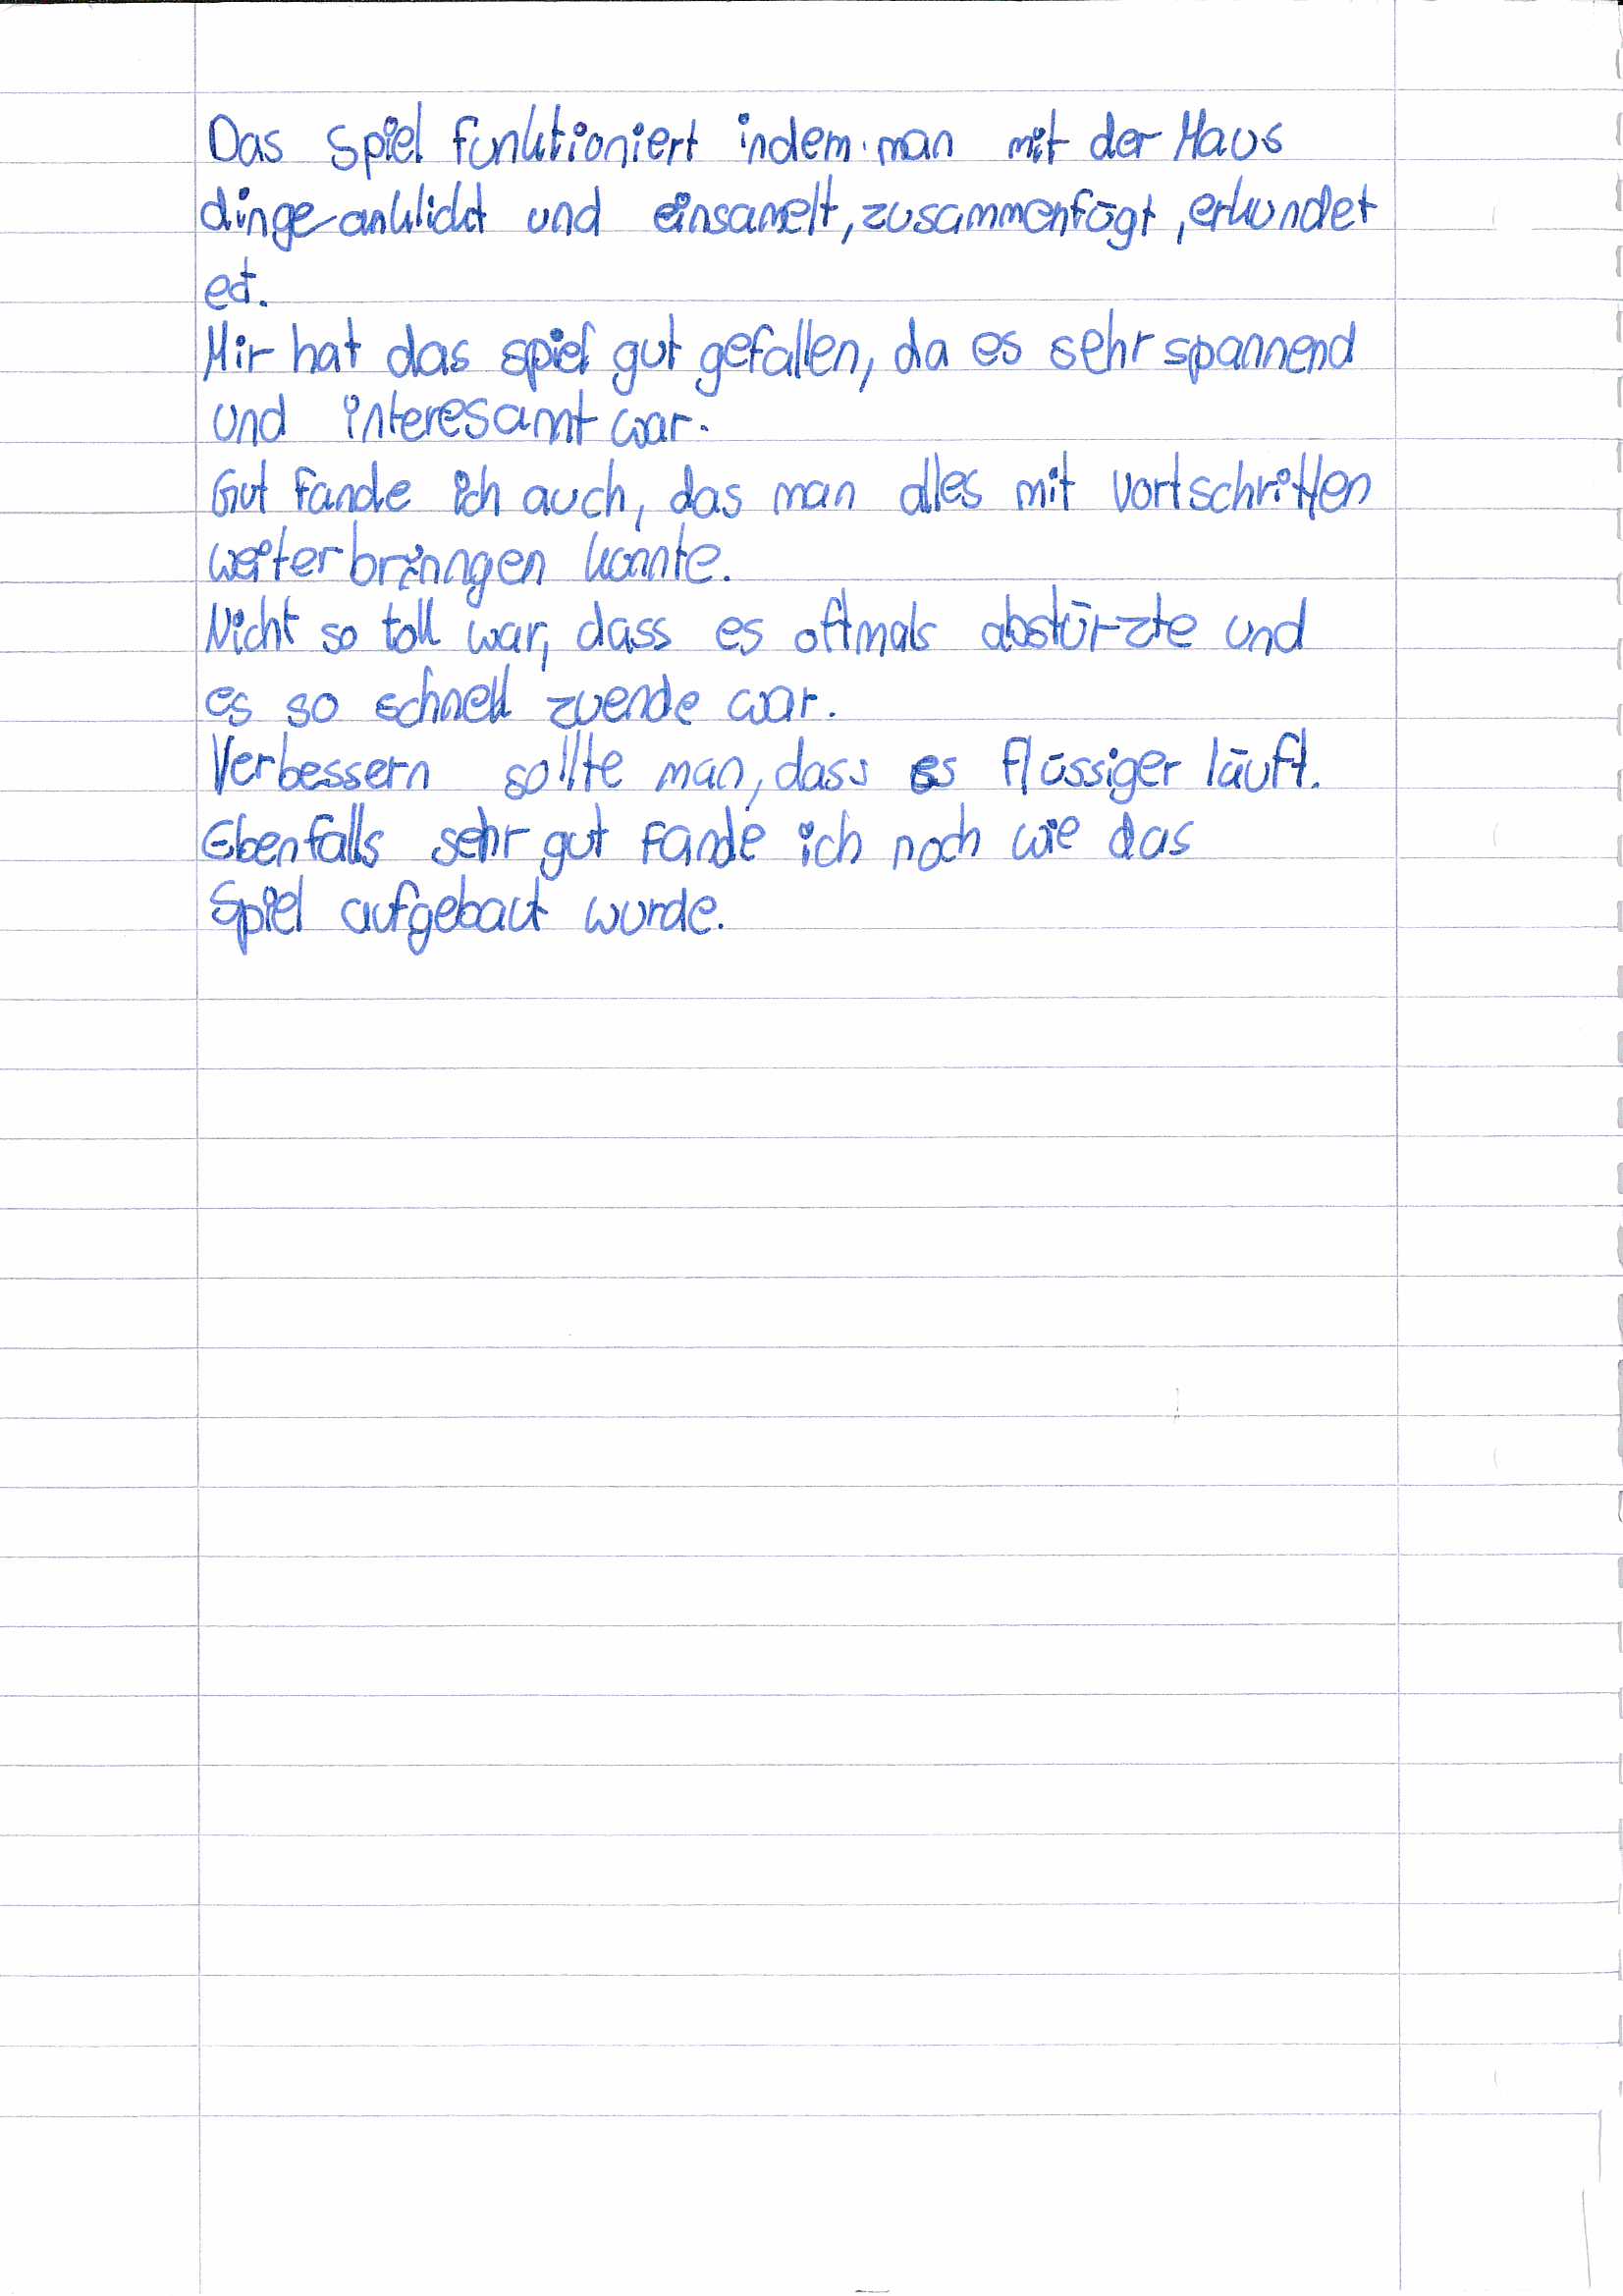 Das Spiel funktioniert indem man mit der Maus
dinge anklickt und einsamelt, zusammenfügt, erkundet
ect.
Mir hat das spiel gut gefallen, da es sehr spannend
und interesannt war.
Gut fande ich auch, das man alles mit vortschritten
weiterbrinngen konnte.
Nicht so toll war, dass es oftmals abstürzte und
es so schnell zuende war.
Verbessern sollte man, dass es flüssiger läuft.
Ebenfalls sehr gut fande ich noch wie das
Spiel aufgebaut wurde.